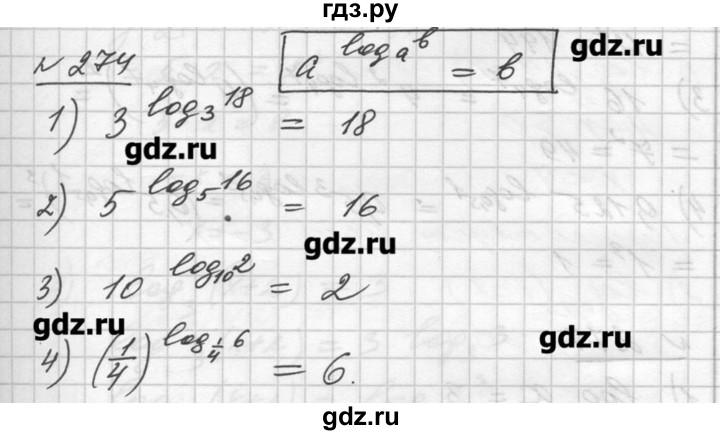 гдз.ру
№ 274
a^{log_a b} = b
gdz.ru
1) 3^{log_3 18} = 18
gdz.ru
2) 5^{log_5 16} = 16
gdz.ru
3) 10^{log_{10} 2} = 2
gdz.ru
gdz.ru
4) (1/4)^{log_{1/4} 6} = 6.
gdz.ru